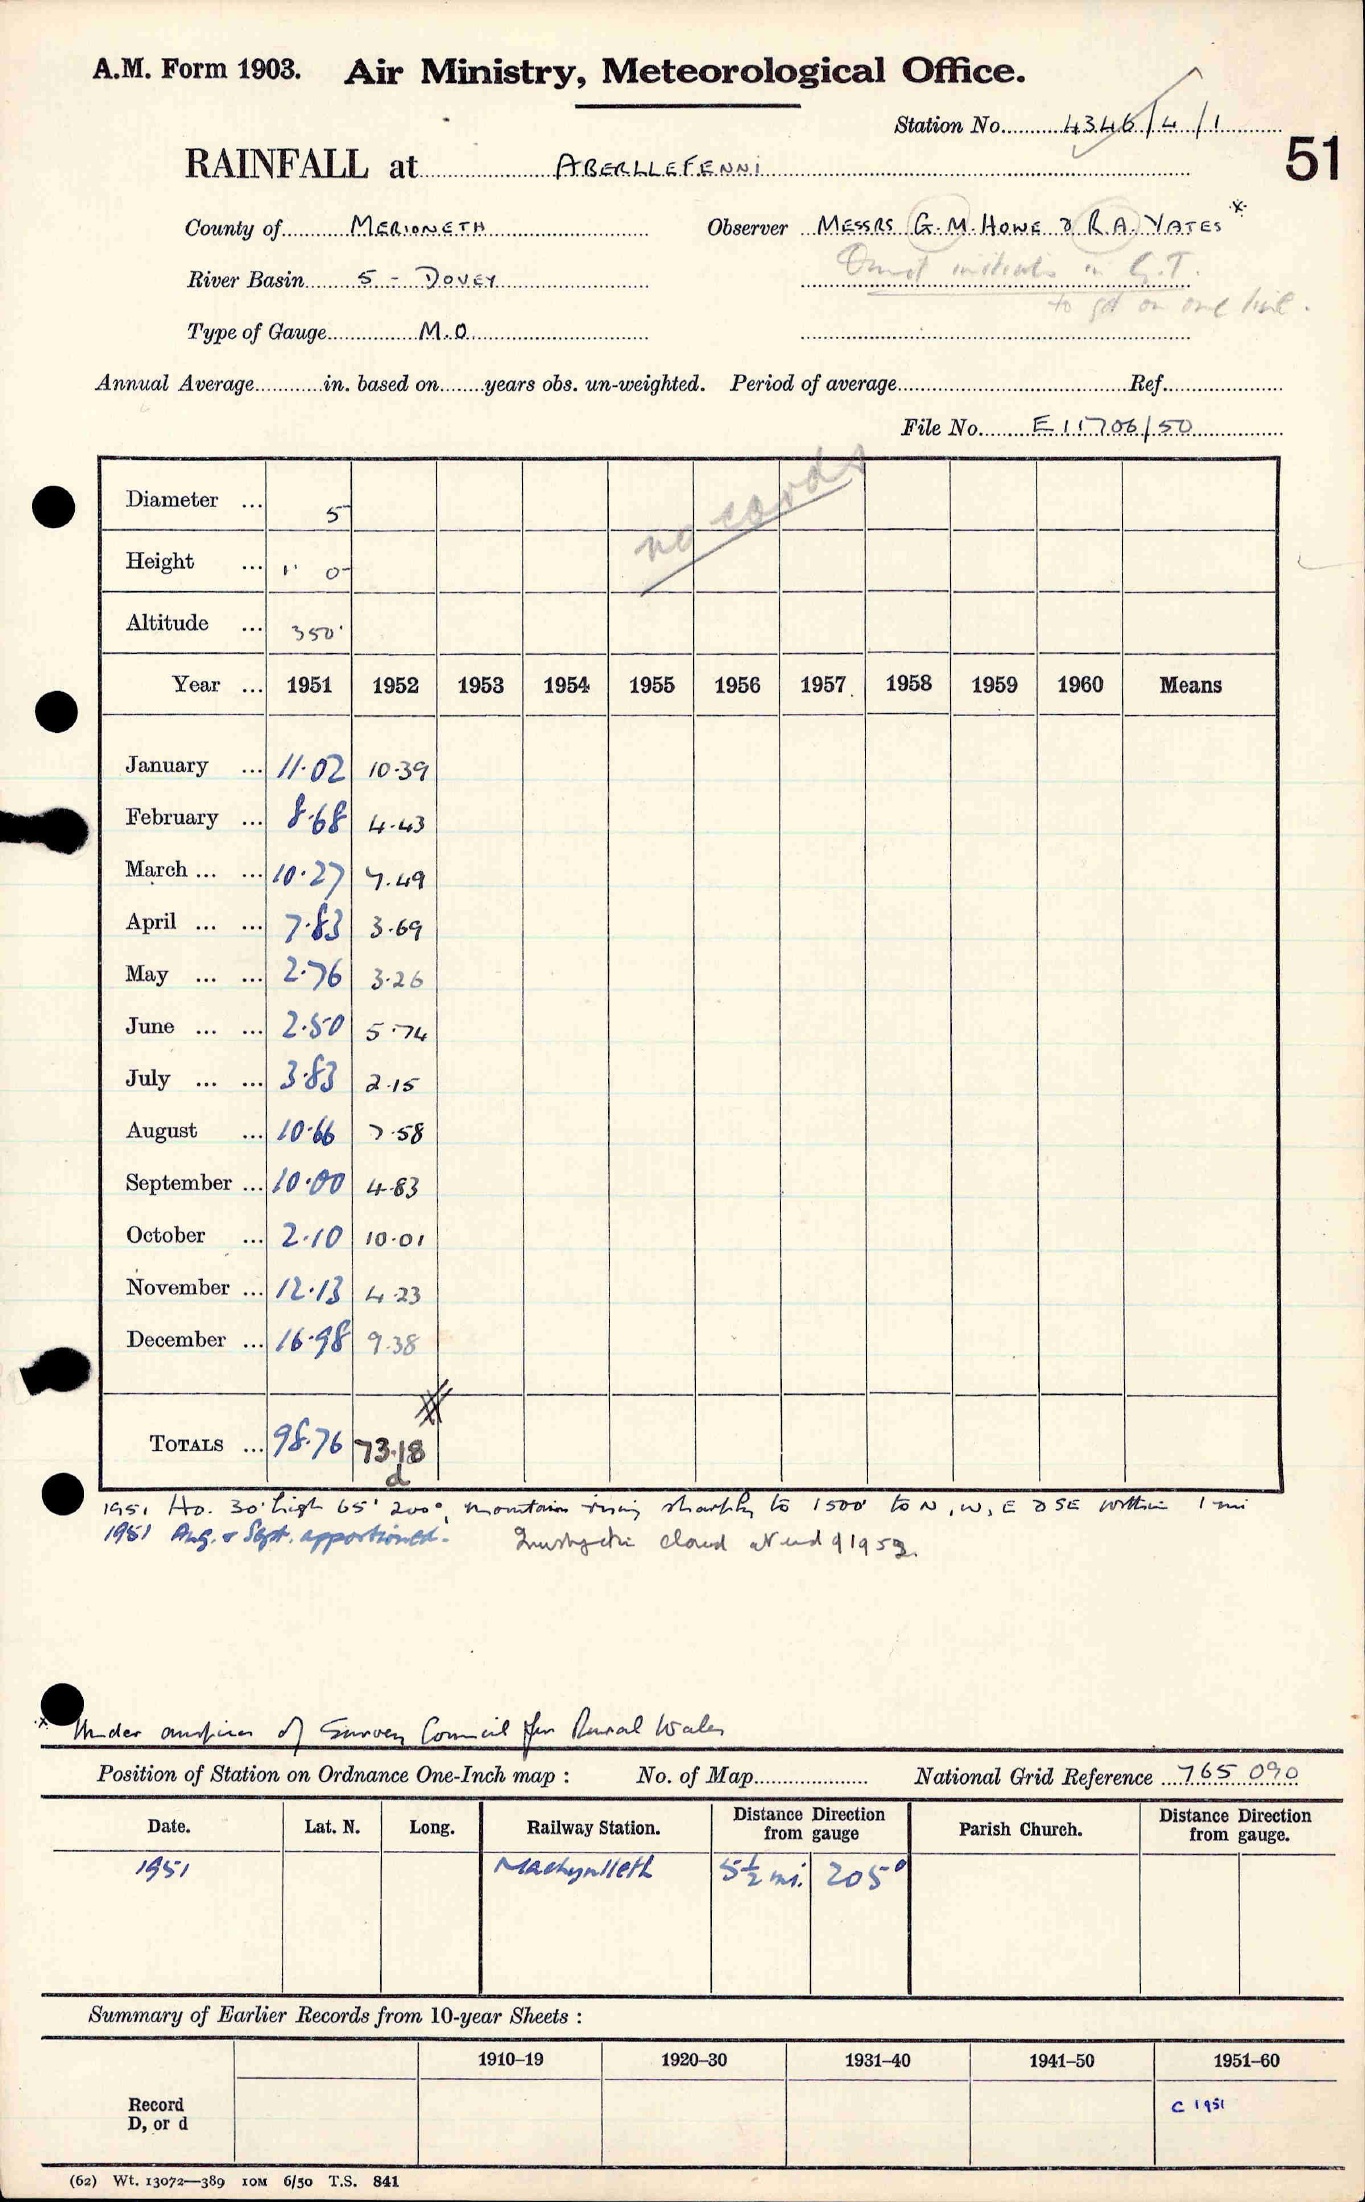 A.M. Form 1903. Air Ministry, Meteorological Office.
Station No. 4346/4/1
51
RAINFALL at ABERLLEFENNI
County of MERIONETH Observer MESSRS G.M. HOWE & R.A. YATES *
River Basin 5 - DOVEY Omit initials in G.T.
to get on one line.
Type of Gauge M.O.
Annual Average in. based on years obs. un-weighted. Period of average Ref.
File No. E11706/50
no cards
Diameter ... 5
Height ... 1' 0
Altitude ... 350'
Year ... 1951 1952 1953 1954 1955 1956 1957 1958 1959 1960 Means
January ... 11.02 10.39
February ... 8.68 4.43
March ... ... 10.27 7.49
April ... ... 7.83 3.69
May ... ... 2.76 3.26
June ... ... 2.50 5.74
July ... ... 3.83 2.15
August ... 10.66 7.58
September ... 10.00 4.83
October ... 2.10 10.01
November ... 12.13 4.23
December ... 16.98 9.38
TOTALS ... 98.76 73.18
d
1951 Ho. 30' high 65' 200°, mountain rising sharply to 1500' to N, W, E & SE within 1 mi
1951 Aug. & Sept. apportioned. Investigation closed at end of 1952.
* Under auspices of Survey Council for Rural Wales
Position of Station on Ordnance One-Inch map : No. of Map National Grid Reference 765 090
Date. Lat. N. Long. Railway Station. Distance Direction from gauge Parish Church. Distance Direction from gauge.
1951 Machynlleth 5½ mi. 205°
Summary of Earlier Records from 10-year Sheets :
1910–19 1920–30 1931–40 1941–50 1951–60
Record
D, or d
C 1951
(62) Wt. 13072—389 10M 6/50 T.S. 841